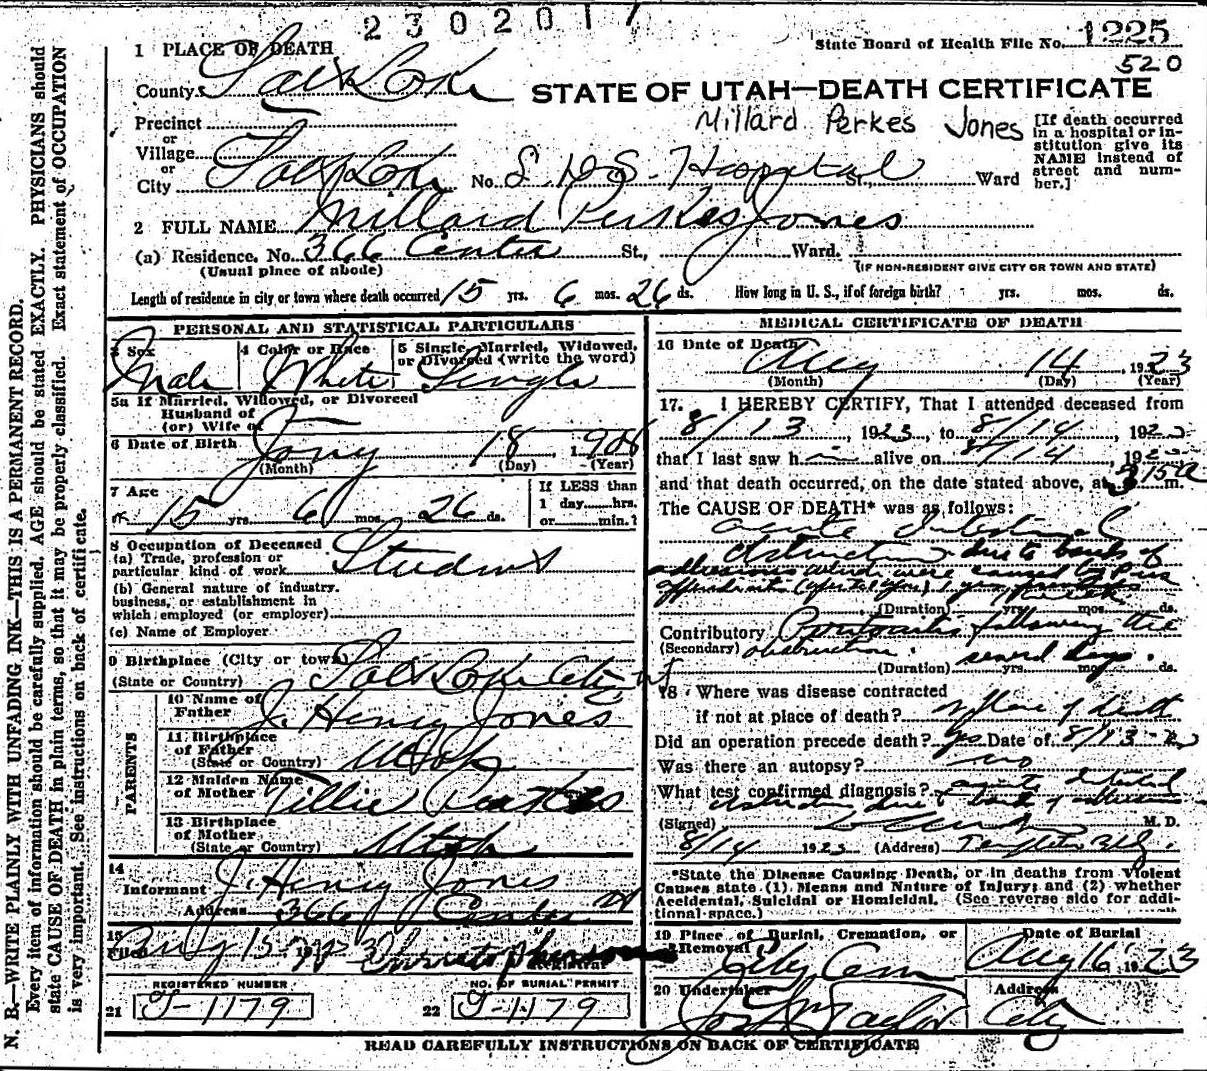 2302017
State Board of Health File No. 1225
520
1 PLACE OF DEATH
County Salt Lake
STATE OF UTAH—DEATH CERTIFICATE
Millard Perkes Jones
[If death occurred in a hospital or institution give its NAME instead of street and number.]
Precinct
or
Village
or
City Salt Lake No. L.D.S. Hospital St., Ward
2 FULL NAME Millard Perkes Jones
(a) Residence. No. 366 Center St., Ward.
(Usual place of abode) (IF NON-RESIDENT GIVE CITY OR TOWN AND STATE)
Length of residence in city or town where death occurred 15 yrs. 6 mos. 26 ds. How long in U. S., if of foreign birth? yrs. mos. ds.
PERSONAL AND STATISTICAL PARTICULARS
3 Sex
Male
4 Color or Race
White
5 Single, Married, Widowed, or Divorced (write the word)
Single
5a If Married, Widowed, or Divorced
Husband of
(or) Wife of
6 Date of Birth Jany 18 1908
(Month) (Day) (Year)
7 Age 15 yrs. 6 mos. 26 ds.
If LESS than
1 day hrs.
or min.?
8 Occupation of Deceased
(a) Trade, profession or
particular kind of work Student
(b) General nature of industry.
business, or establishment in
which employed (or employer)
(c) Name of Employer
9 Birthplace (City or town) Salt Lake City
(State or Country) Ut
PARENTS
10 Name of
Father J. Henry Jones
11 Birthplace
of Father
(State or Country) Utah
12 Maiden Name
of Mother Tillie Perkes
13 Birthplace
of Mother
(State or Country) Utah
14
Informant J. Henry Jones
Address 366 Center St
15
Filed Aug 15 1923 Christopherson
Registrar
REGISTERED NUMBER
21 T-1179
NO. OF BURIAL PERMIT
22 T-1179
MEDICAL CERTIFICATE OF DEATH
16 Date of Death Aug 14, 1923
(Month) (Day) (Year)
17. I HEREBY CERTIFY, That I attended deceased from
8/13, 1923, to 8/14, 1923
that I last saw him alive on 8/14, 192
and that death occurred, on the date stated above, at 3 15 a m.
The CAUSE OF DEATH* was as follows:
acute intestinal
obstruction due to bands of
adhesions which were caused by
appendicitis
(Duration) yrs. mos. ds.
Contributory Peritonitis following the
(Secondary) obstruction.
(Duration) several days. yrs. mos. ds.
18 Where was disease contracted
if not at place of death? place of death
Did an operation precede death? yes Date of 8/13-23
Was there an autopsy? no
What test confirmed diagnosis? acute
obstruction due to bands of adhesions
(Signed) M. D.
8/14 1923 (Address) Templeton Bldg.
*State the Disease Causing Death, or in deaths from Violent
Causes state (1) Means and Nature of Injury; and (2) whether
Accidental, Suicidal or Homicidal. (See reverse side for additional space.)
19 Place of Burial, Cremation, or
Removal
City Cem
Date of Burial
Aug 16 1923
20 Undertaker
Jos. Wm Taylor
Address
City
READ CAREFULLY INSTRUCTIONS ON BACK OF CERTIFICATE
N. B.—WRITE PLAINLY WITH UNFADING INK—THIS IS A PERMANENT RECORD.
Every item of information should be carefully supplied. AGE should be stated EXACTLY. PHYSICIANS should
state CAUSE OF DEATH in plain terms, so that it may be properly classified. Exact statement of OCCUPATION
is very important. See instructions on back of certificate.